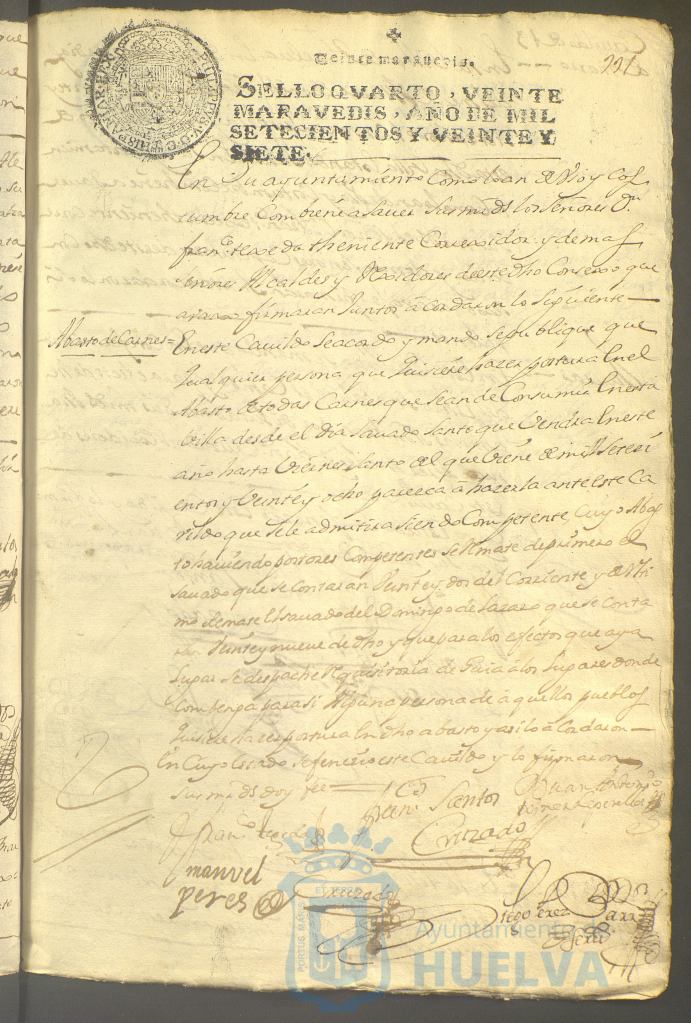 Veinte maravedis.
SELLO QVARTO, VEINTE
MARAVEDIS, AÑO DE MIL
SETECIENTOS Y VEINTE Y
SIETE.
En Su ayuntamiento Como lo an de Uso y Cos
tumbre Combiene a Saver Sus mds los Señores Dn
franco texeda theniente Correxidor y demas
Señores Alcaldes y Rexidores de este dho Consexo que
avaxo firmaran Juntos acordaron lo Siguiente
Abasto de Carnes=
En este Cavildo Se acordo y mando Se publique que
qualquier persona que quisiere hazer postura En el
Abasto de todas Carnes que Sean de Consumir En esta
Villa desde el dia Savado Santo que Vendra En este
año hasta Viernes Santo del que viene de mill Seteci
entos y Veinte y ocho parezca a hazerla ante este Ca
vildo que Se le admitira Siendo Competente, Cuyo Abas
to haviendo postores Competentes Se Remate de primero el
Savado que Se Contaran Veinte y dos del Corriente y de Ulti
mo Remate El Savado del Domingo de Lazaro que Se Conta
ran Veinte y nueve de dho y que para los efectos que aya
Lugar Se despache Requisitoria de Guia a los Lugares donde
Combenga para Si Alguna persona de aquellos pueblos
quisiere hazer postura En dho abasto y asi lo acordaron
En Cuyo Estado Se fenecio este Cavildo y lo firmaron
Sus mds doy fee
Juan Santos
Cruzado
Juan Antonio
Franco texeda
manuel
peres
Cruzado
Diego Perez
ET TERRAE
PORTUS MARIS
Ayuntamiento de
HUELVA